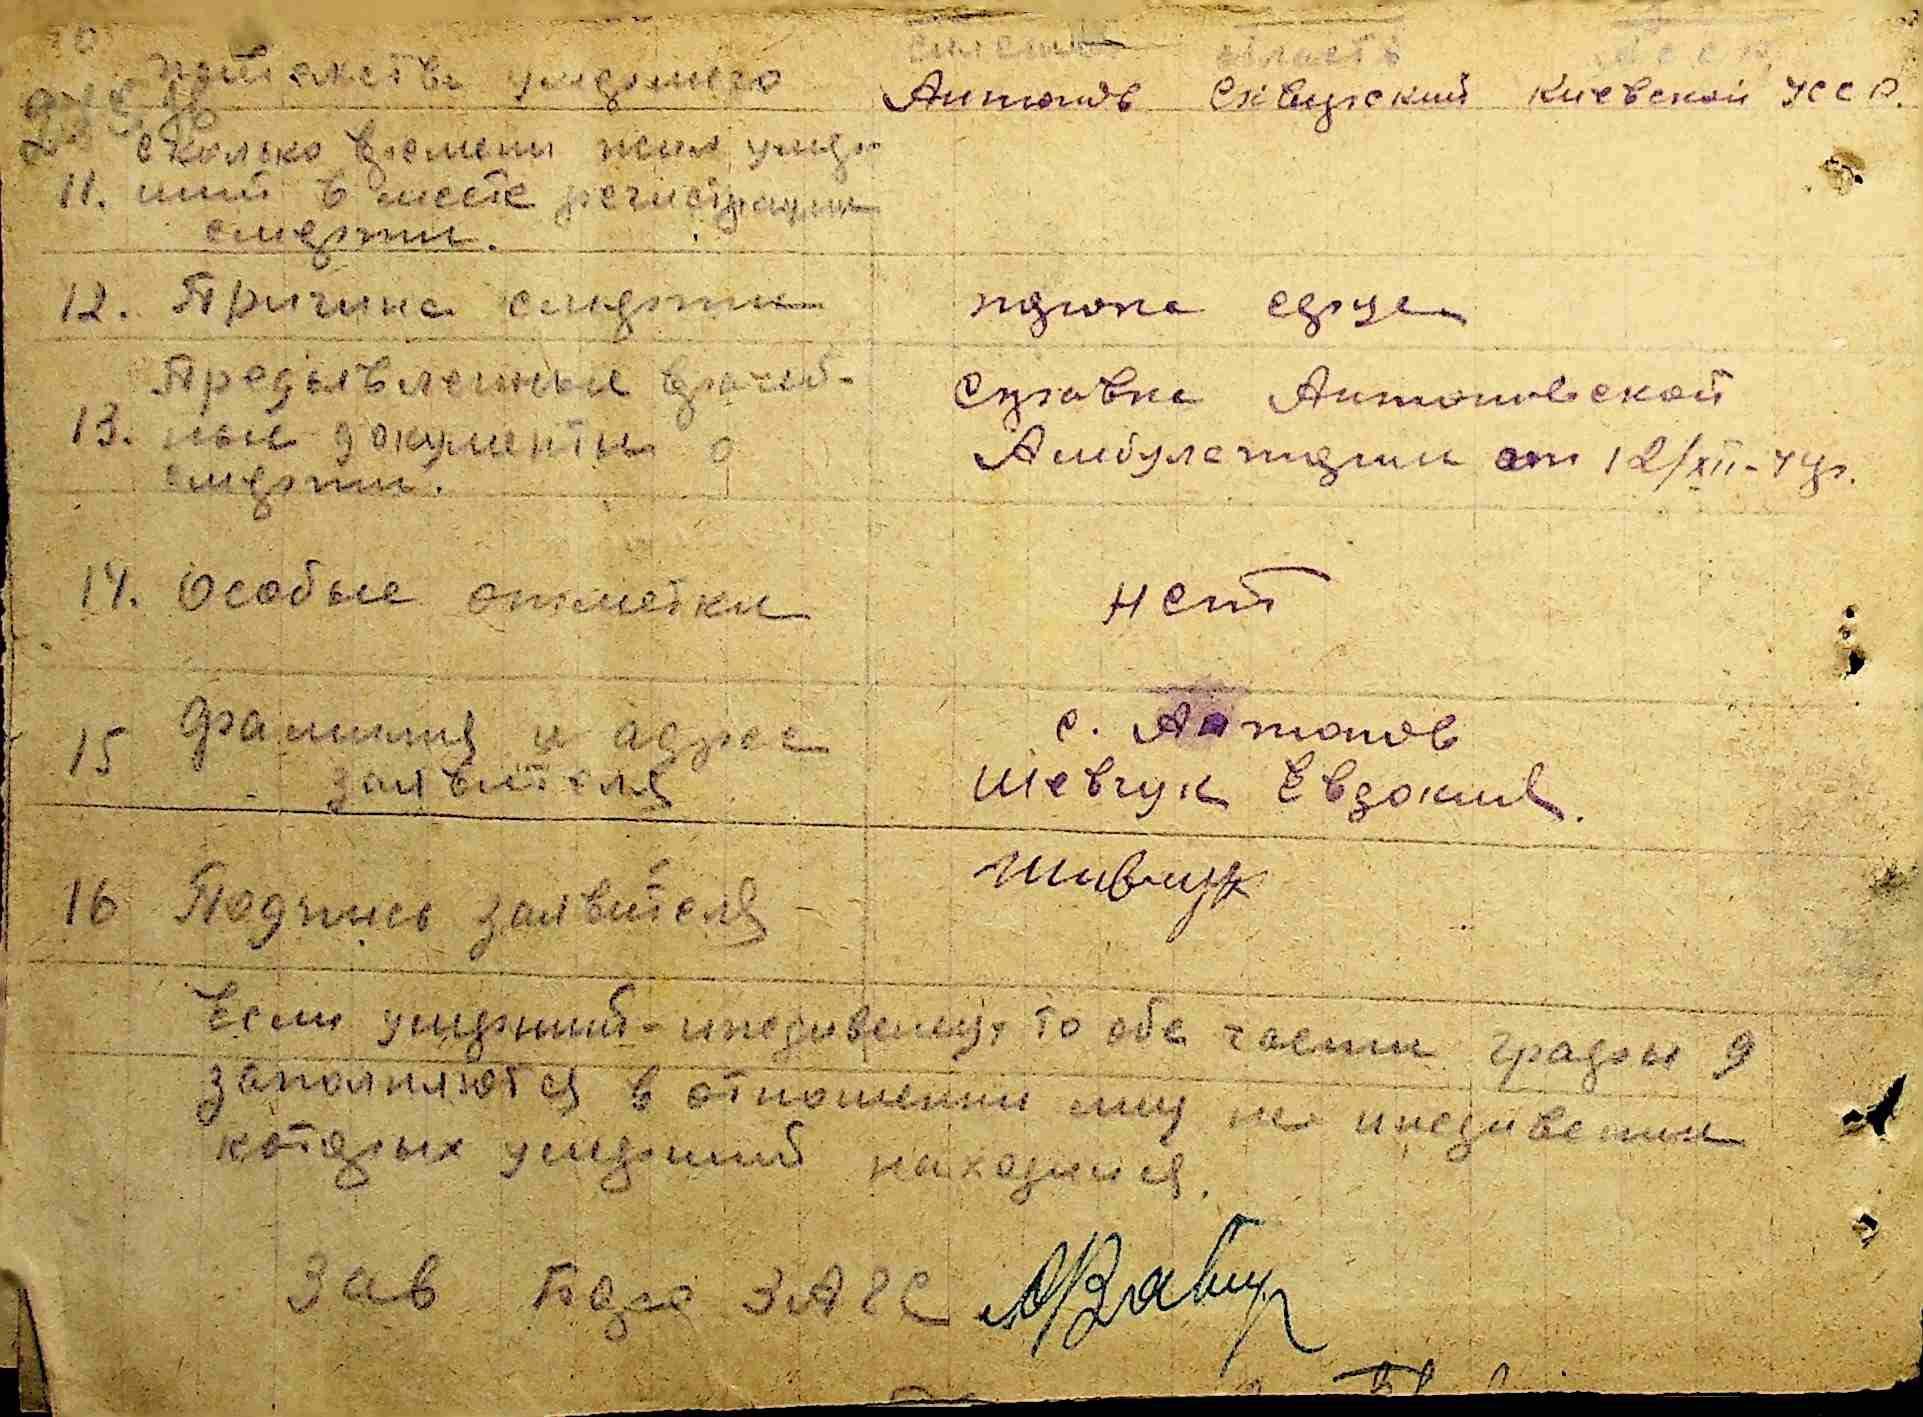 10 область УССР
жительства умершего Антонов Сквирский Киевской УССР.
сколько времени жил умер-
11. ший в месте регистрации
смерти.
12. Причина смерти порока серца
13. Предъявленные врачеб- Справка Антоновской
ные документы о Амбулатории от 12/XII-44г.
смерти.
14. Особые отметки нет
15 Фамилия и адрес с. Антонов
заявителя Шевчук Евдокия.
16 Подпись заявителя Шивчук
Если умерший - иждивенец, то обе части графы 9
заполняются в отношении лиц на иждивении
которых умерший находился.
Зав Бюро ЗАГС